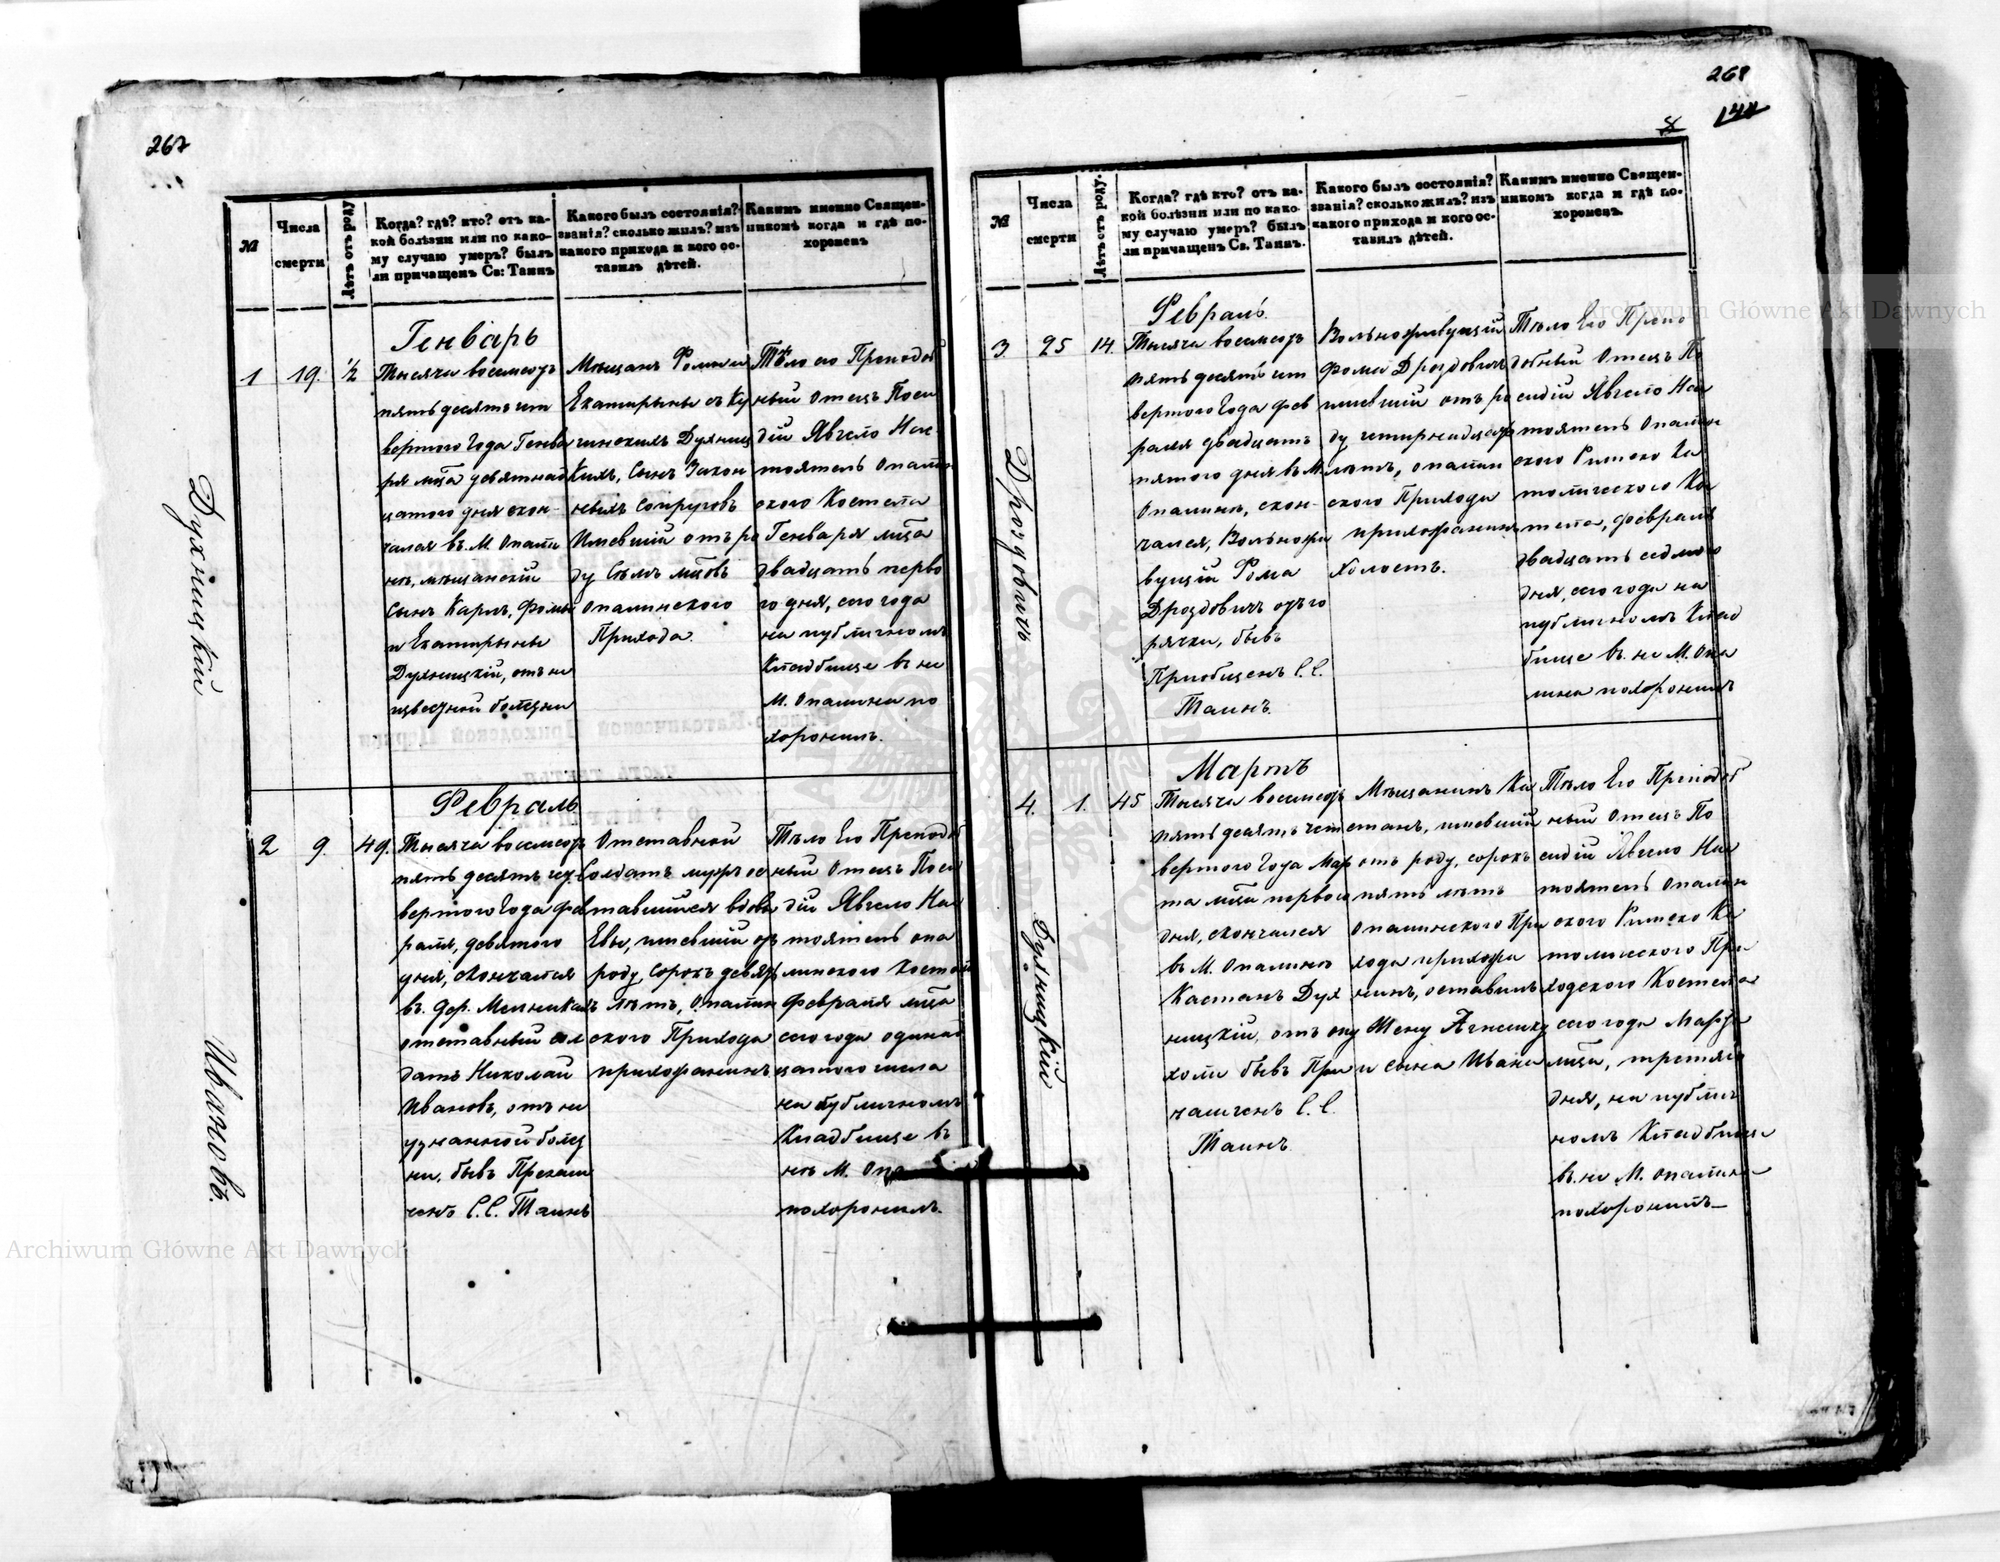 267
№
Числа
смерти
Лѣтъ отъ роду
Когда? гдѣ? кто? отъ ка-
кой болѣзни или по како-
му случаю умеръ? былъ
ли причащенъ Св: Таинъ
Какого былъ состоянія?
званія? сколько жилъ? изъ
какого прихода и кого ос-
тавилъ дѣтей.
Какимъ именно Священ-
никомъ когда и гдѣ по-
хороненъ
Духницкій
Генварь
1
19.
½
Тысяча восемсотъ
пятьдесятъ чет
вертого Года Генва
ря мца девятнад
цатого дня скон-
чался въ М. Опали
нѣ, мѣщанскій
Сынъ Карлъ, Фомы
и Екатирыны
Духницкій, отъ не
извѣстной болѣзни
Мѣщанъ Фомы и
Екатирыны съ Ку
чинскихъ Духниц
кихъ, Сынъ Закон
ныхъ Супруговъ
Имевшій отъ ро
ду Сѣмъ мцовъ
Опалинского
Прихода.
Тѣло его Преподоб
ный Отецъ Поси
дій Явгело Нас-
тоятель Опалин
ского Костела
Генваря мца
двадцать перво
го дня, сего года
на публичномъ
Кладбище въ не
М. Опалина по
хоронилъ.
Ивановъ.
Февраль
2
9.
49.
Тысяча восемсотъ
пятьдесятъ чет
вертого Года фев
раля, девятого
дня, скончался
въ дер. Мельникахъ
отставный сол
датъ Николай
Ивановъ, отъ не
узнанной болез
ни, бывъ Причащ
ченъ С.С. Таинъ
Отставной
Солдатъ мужъ ос
тавшийся вдовы
Евы, имевшій отъ
роду, сорокъ девять
лѣтъ, Опалин
ского Прихода
прихожанинъ
Тѣло Его Преподоб
ный Отецъ Поси
дій Явгело Нас
тоятель опа
линского Костела
февраля мца
сего года одинад
цатого числа
на публичномъ
Кладбище въ
нѣ М. Опа
похоронилъ.
268
144
8
№
Числа
смерти
Лѣтъ отъ роду.
Когда? гдѣ кто? отъ ка-
кой болѣзни или по како-
му случаю умеръ? былъ
ли причащенъ Св. Таинъ.
Какого былъ состоянія?
званія? сколько жилъ? изъ
какого прихода и кого ос-
тавилъ дѣтей.
Какимъ именно Священ-
никомъ когда и гдѣ по-
хороненъ.
Дроздовичъ
Февраль
3
25
14.
Тысяча восемсотъ
пятьдесятъ чет
вертого Года фев
раля двадцать
пятого дня въ М.
Опалинѣ, скон-
чался, Вольножи
вущій Фома
Дроздовичъ отъ го
рячки, бывъ
Приобщенъ С.С.
Таинъ.
Вольноживущій
Фома Дроздовичъ
имевшій отъ ро
ду четирнадцать
лѣтъ, опалин
ского Прихода
прихожанинъ
Холостъ.
Тѣло Его Препо
добный Отецъ По
сидій Явгело Нас
тоятель Опалин
ского Римско Ка
толического Кос
тела, февраля
двадцать седмого
дня, сего года на
публичномъ Клад
бище въ не М. Опа
лина похоронилъ
Духницкій
Мартъ
4.
1.
45
Тысяча восемсотъ
пятьдесятъ чет
вертого Года Мар
та мца первого
дня, скончался
въ М. Опалинѣ
Каетанъ Дух
ницкій, отъ опу
холи бывъ При
чащенъ С.С.
Таинъ
Мѣщанинъ Ка
етанъ, имевшій
отъ роду, сорокъ
пять лѣтъ
Опалинского При
хода прихожа
нинъ, оставилъ
Жену Агнешку
и сына Ивана
Тѣло Его Преподоб
ный Отецъ По
сидій Явгело Нас
тоятель Опалин
ского Римско Ка
толического При
ходского Костела
сего года Марта
мца, третяго
дня, на публич
номъ Кладбище
въ не М. Опалина
похоронилъ
Archiwum Główne Akt Dawnych
Archiwum Główne Akt Dawnych